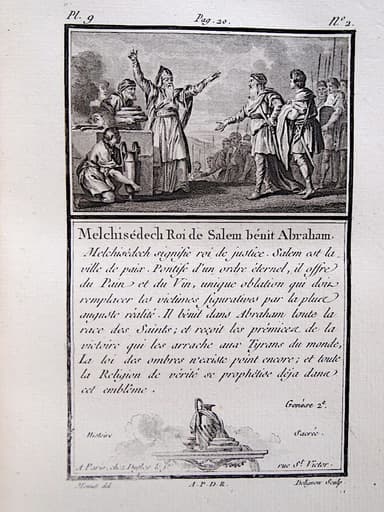 Pl. 9 Pag. 20. N.º 2.
Melchisédech Roi de Salem bénit Abraham.
Melchisédech signifie roi de justice. Salem est la
ville de paix. Pontife d'un ordre éternel, il offre
du Pain et du Vin, unique oblation qui doit
remplacer les victimes figuratives par la plus
auguste réalité. Il bénit dans Abraham toute la
race des Saints; et reçoit les prémices de la
victoire qui les arrache aux Tyrans du monde,
La loi des ombres n'existe point encore; et toute
la Religion de vérité se prophétise déja dans
cet emblême.
Genèse 2.e
Histoire Sacrée.
A Paris, chez Duflos le j.e rue S.t Victor.
Monnet del. A.P.D.R. Sculp